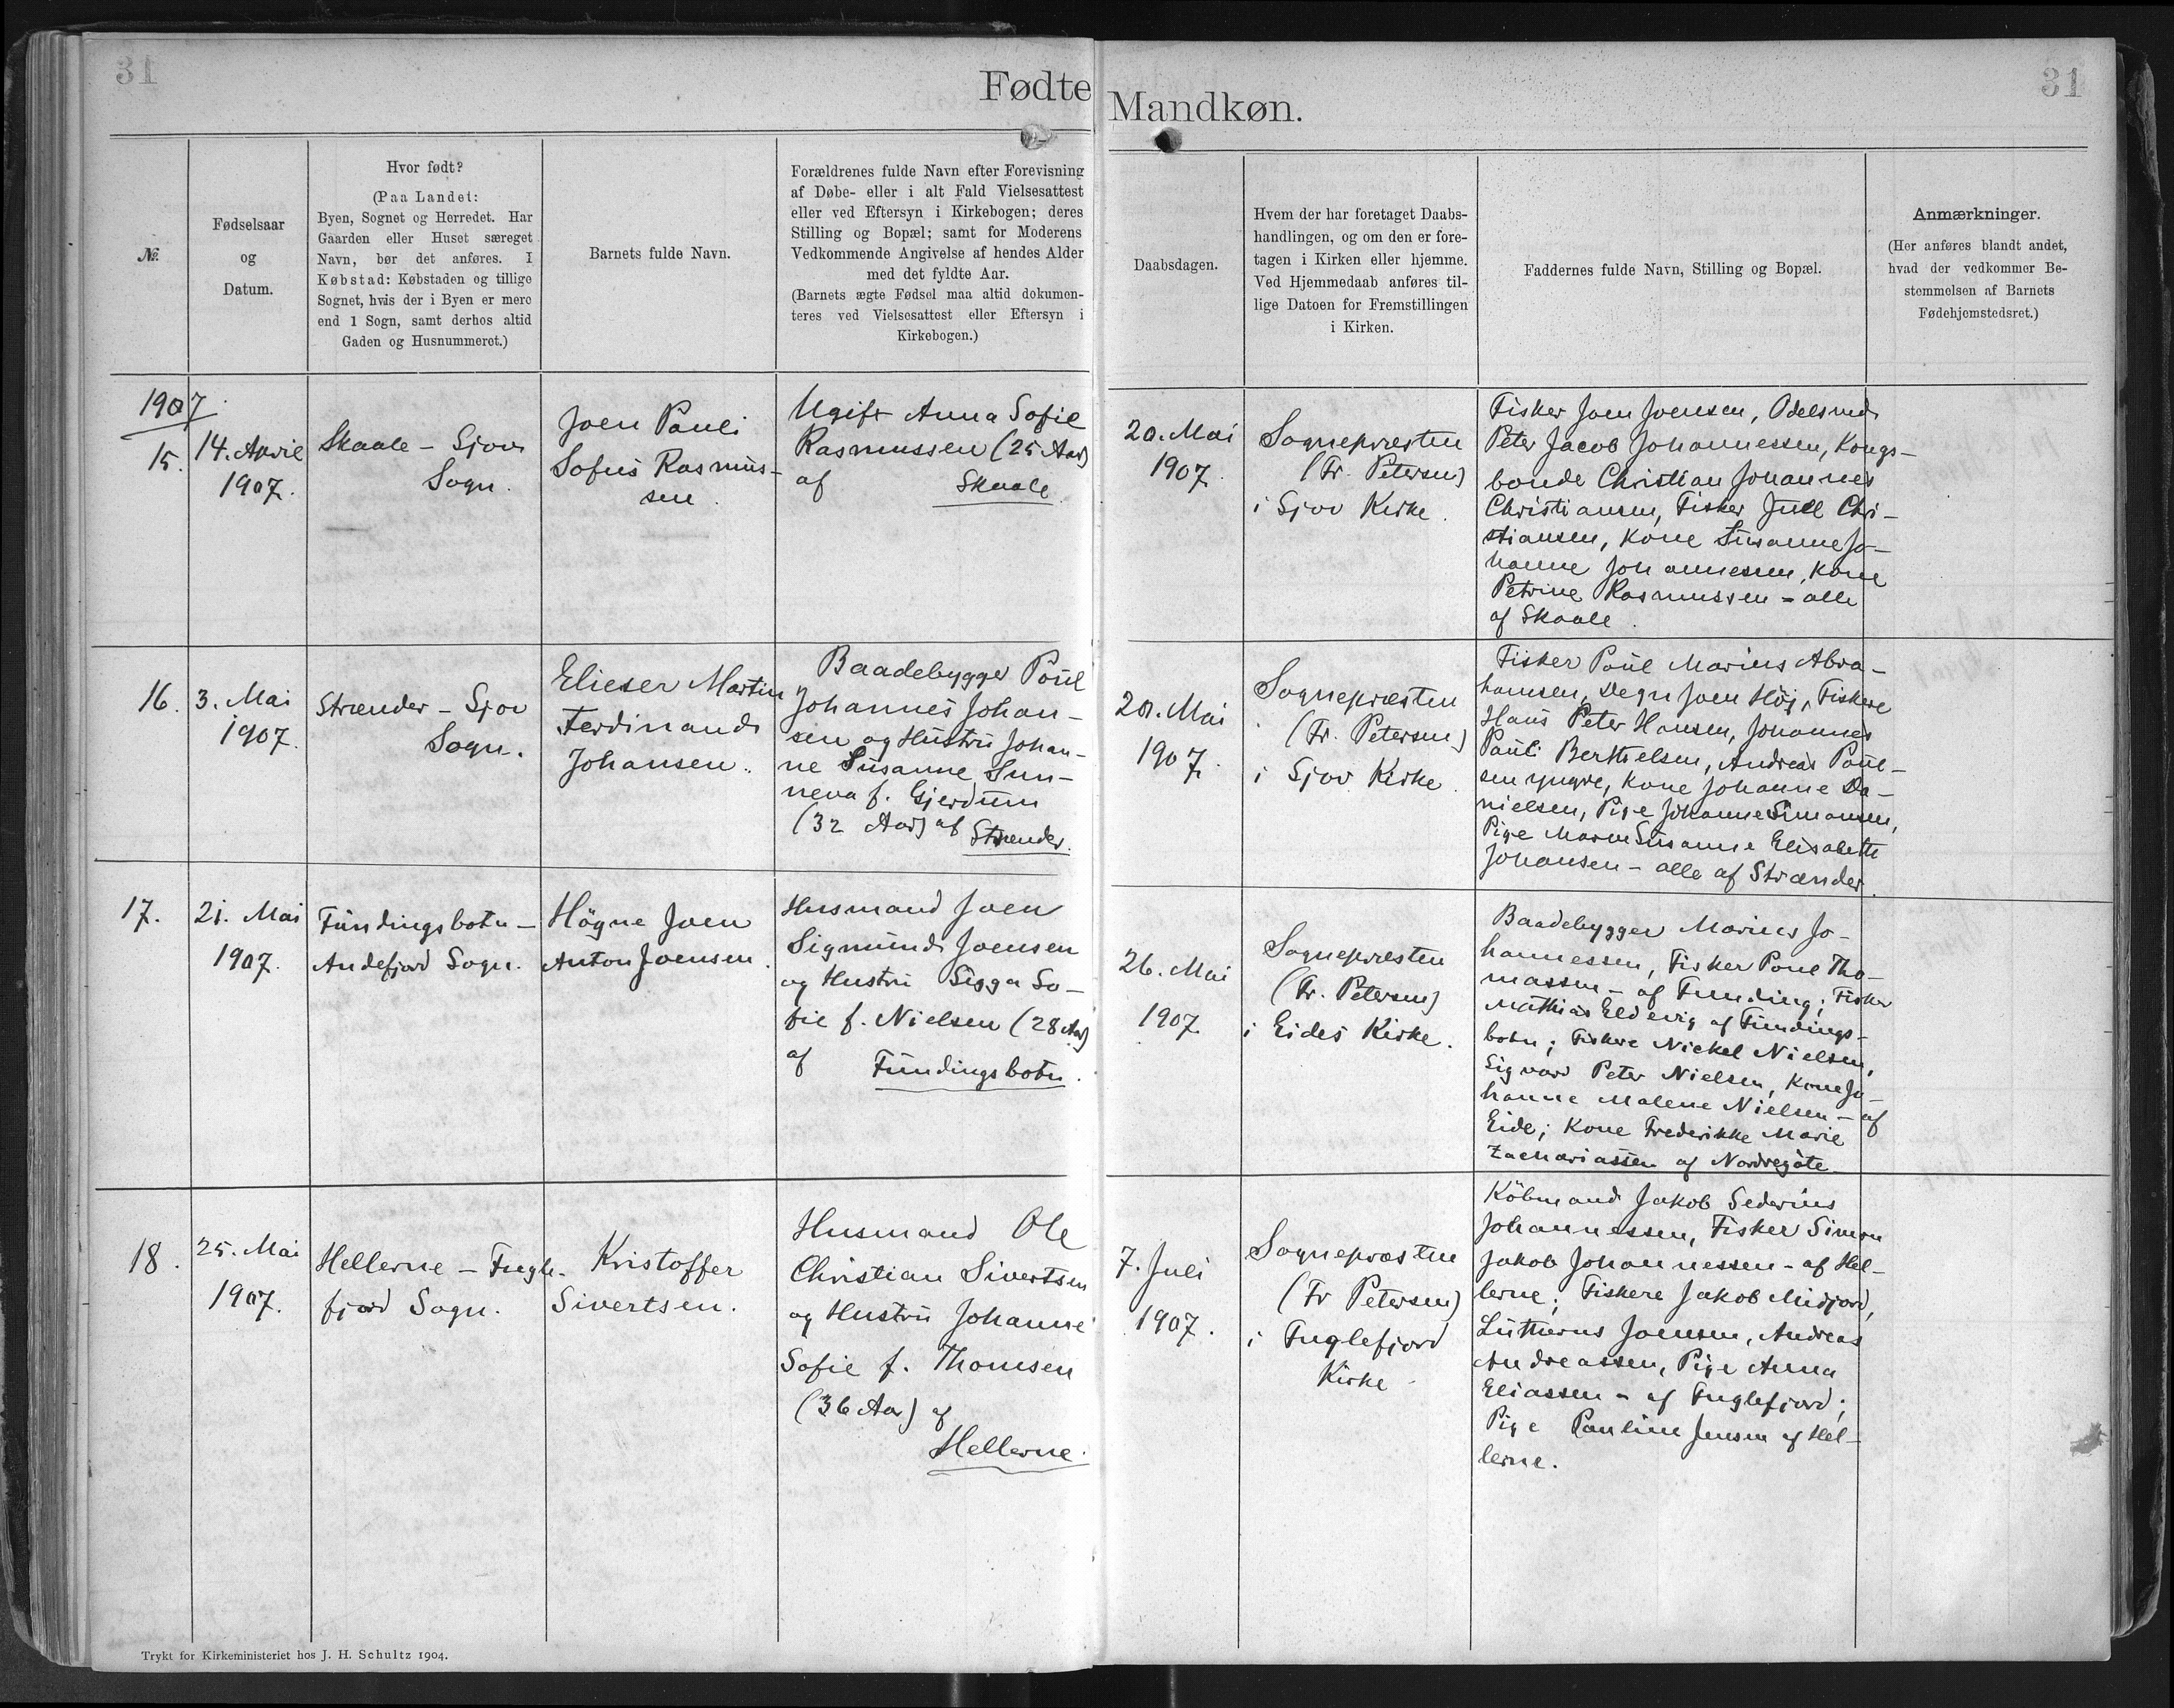 31
31
Fødte
Mandkøn.
№
Fødselsaar
og
Datum.
Hvor født?
(Paa Landet:
Byen, Sognet og Herredet. Har
Gaarden eller Huset særeget
Navn, bør det anføres. I
Købstad: Købstaden og tillige
Sognet, hvis der i Byen er mere
end 1 Sogn, samt derhos altid
Gaden og Husnummeret.)
Barnets fulde Navn.
Forældrenes fulde Navn efter Forevisning
af Døbe- eller i alt Fald Vielsesattest
eller ved Eftersyn i Kirkebogen; deres
Stilling og Bopæl; samt for Moderens
Vedkommende Angivelse af hendes Alder
med det fyldte Aar.
(Barnets ægte Fødsel maa altid dokumen-
teres ved Vielsesattest eller Eftersyn i
Kirkebogen.)
Daabsdagen.
Hvem der har foretaget Daabs-
handlingen, og om den er fore-
tagen i Kirken eller hjemme.
Ved Hjemmedaab anføres til-
lige Datoen for Fremstillingen
i Kirken.
Faddernes fulde Navn, Stilling og Bopæl.
Anmærkninger.
(Her anføres blandt andet,
hvad der vedkommer Be-
stemmelsen af Barnets
Fødehjemstedsret.)
1907
15.
14. April
1907.
Skaale - Sjov
Sogn.
Joen Pauli
Sofus Rasmus-
sen.
Ugift Anna Sofie
Rasmussen (25 Aar)
af Skaale.
20. Mai
1907.
Sognepræsten
(Fr. Petersen)
i Sjov Kirke.
Fisker Joen Joensen, Odelsmd
Peter Jacob Johannessen, Kongs-
bonde Christian Johannes
Christiansen, Fisker Juel Chri-
stiansen, Kone Susanne Jo-
hanne Johannessen, Kone
Petrine Rasmussen - alle
af Skaale.
16.
3. Mai
1907.
Strænder - Sjov
Sogn.
Elieser Martin
Ferdinand
Johansen.
Baadebygger Poul
Johannes Johan-
sen og Hustru Johan-
ne Susanne Sun-
neva f. Gjerdum
(32 Aar) af Strænder.
20. Mai
1907.
Sognepræsten
(Fr. Petersen)
i Sjov Kirke.
Fisker Poul Marius Abra-
hamsen, Degn Joen Höj, Fiskere
Hans Peter Hansen, Johannes
Pauli Berthelsen, Andreas Poul-
sen yngre, Kone Johanne Da-
nielsen, Pige Johanne Simonsen,
Pige Maren Susanne Elisabeth
Johansen - alle af Strænder.
17.
21. Mai
1907.
Fundingsbotn -
Andefjord Sogn.
Högne Joen
Anton Joensen.
Husmand Joen
Sigmund Joensen
og Hustru Sigga So-
fie f. Nielsen (28 Aar)
af Fundingsbotn.
26. Mai
1907.
Sognepræsten
(Fr. Petersen)
i Eides Kirke.
Baadebygger Marius Jo-
hannessen, Fisker Poul Tho-
massen - af Funding; Fisker
Mathias Eldevig af Fundings-
botn; Fiskere Nickel Nielsen,
Sigvard Peter Nielsen, Kone Jo-
hanne Malene Nielsen - af
Eide; Kone Frederikke Marie
Zachariassen af Nordregöte.
18.
25. Mai
1907.
Hellerne - Fugle-
fjord Sogn.
Kristoffer
Sivertsen.
Husmand Ole
Christian Sivertsen
og Hustru Johanne
Sofie f. Thomsen
(36 Aar) af
Hellerne.
7. Juli
1907.
Sognepræsten
(Fr Petersen)
i Fuglefjord
Kirke.
Köbmand Jakob Severius
Johannessen, Fisker Simon
Jakob Johannessen - af Hel-
lerne; Fiskere Jakob Midjord,
Lutherus Joensen, Andreas
Andreassen, Pige Anna
Eliassen - af Fuglefjord;
Pige Pauline Jensen af Hel-
lerne.
Trykt for Kirkeministeriet hos J. H. Schultz 1904.